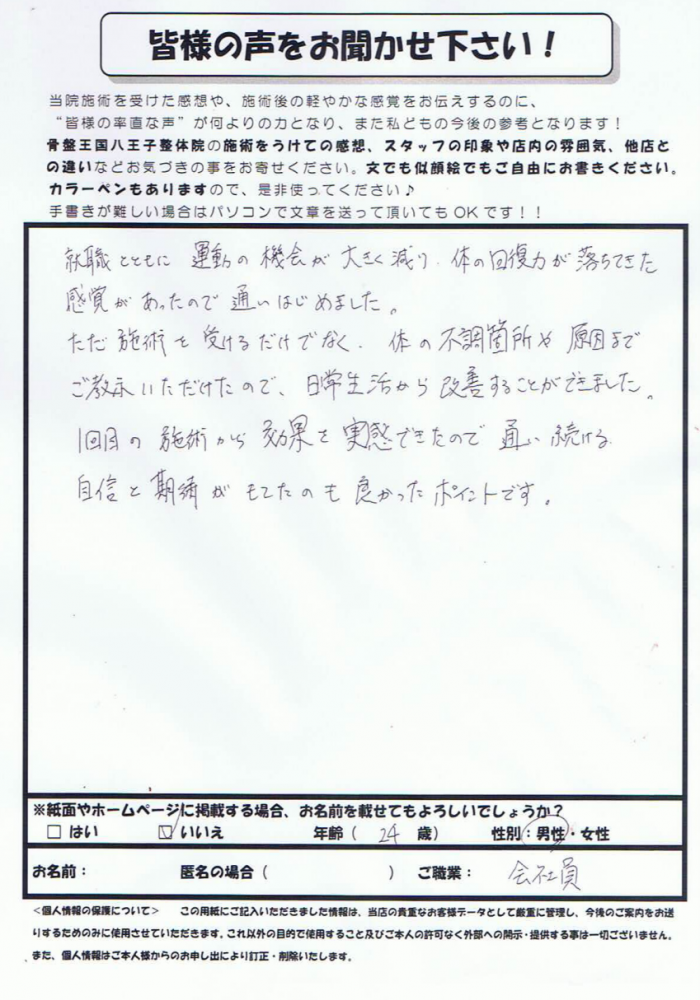 皆様の声をお聞かせ下さい！
当院施術を受けた感想や、施術後の軽やかな感覚をお伝えするのに、
“皆様の率直な声”が何よりの力となり、また私どもの今後の参考となります！
骨盤王国八王子整体院の施術をうけての感想、スタッフの印象や店内の雰囲気、他店と
の違いなどお気づきの事をお寄せください。文でも似顔絵でもご自由にお書きください。
カラーペンもありますので、是非使ってください♪
手書きが難しい場合はパソコンで文章を送って頂いてもOKです！！
就職とともに 運動の機会が 大きく減り、体の回復力が落ちてきた
感覚があったので 通いはじめました。
ただ施術を受けるだけでなく、体の不調箇所や原因まで
ご教示いただけたので、日常生活から改善することができました。
1回目の施術から効果を実感できたので通い続ける
自信と期待がもてたのも良かったポイントです。
※紙面やホームページに掲載する場合、お名前を載せてもよろしいでしょうか？
□ はい ☑ いいえ 年齢（ 24 歳） 性別：男性・女性
お名前： 匿名の場合（ ） ご職業： 会社員
＜個人情報の保護について＞ この用紙にご記入いただきました情報は、当店の貴重なお客様データとして厳重に管理し、今後のご案内をお送
りするためのみに使用させていただきます。これ以外の目的で使用すること及びご本人の許可なく外部への開示・提供する事は一切ございません。
また、個人情報はご本人様からのお申し出により訂正・削除いたします。